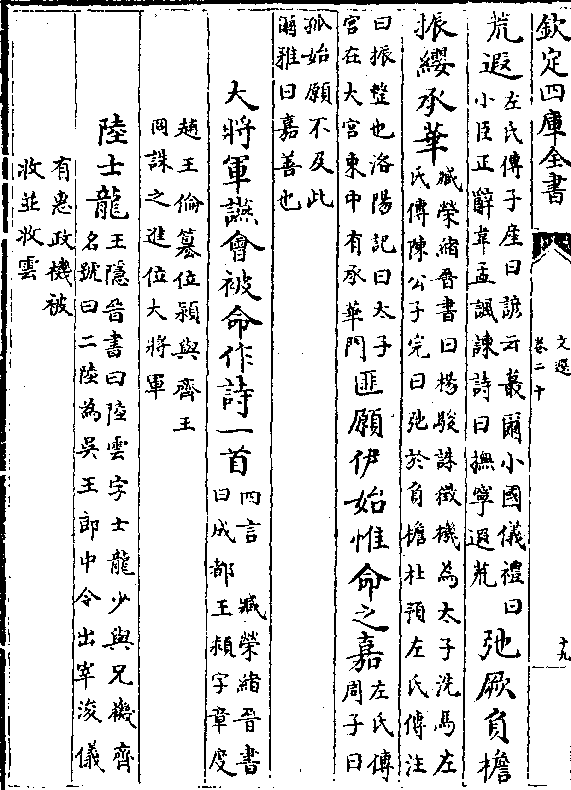 欽定四庫全書
文選
卷二十
十九
荒遐
左氏傳子産曰諺云蕞爾小國儀禮曰
小臣正辭韋孟諷諫詩曰撫寧遐荒
弛厥負檐
振纓承華
臧榮緒晉書曰楊駿誅徵機為太子洗馬左
氏傳陳公子完曰弛於負檐杜預左氏傳注
曰振整也洛陽記曰太子
宫在大宫東中有承華門
匪願伊始惟命之嘉
左氏傳
周子曰
孤始願不及此
爾雅曰嘉善也
大將軍讌會被命作詩一首
四言 臧榮緒晉書
曰成都王穎字章度
趙王倫簒位穎與齊王
冏誅之進位大將軍
陸士龍
王隱晉書曰陸雲字士龍少與兄機齊
名號曰二陸為吳王郎中令出宰浚儀
有惠政機被
收並收雲